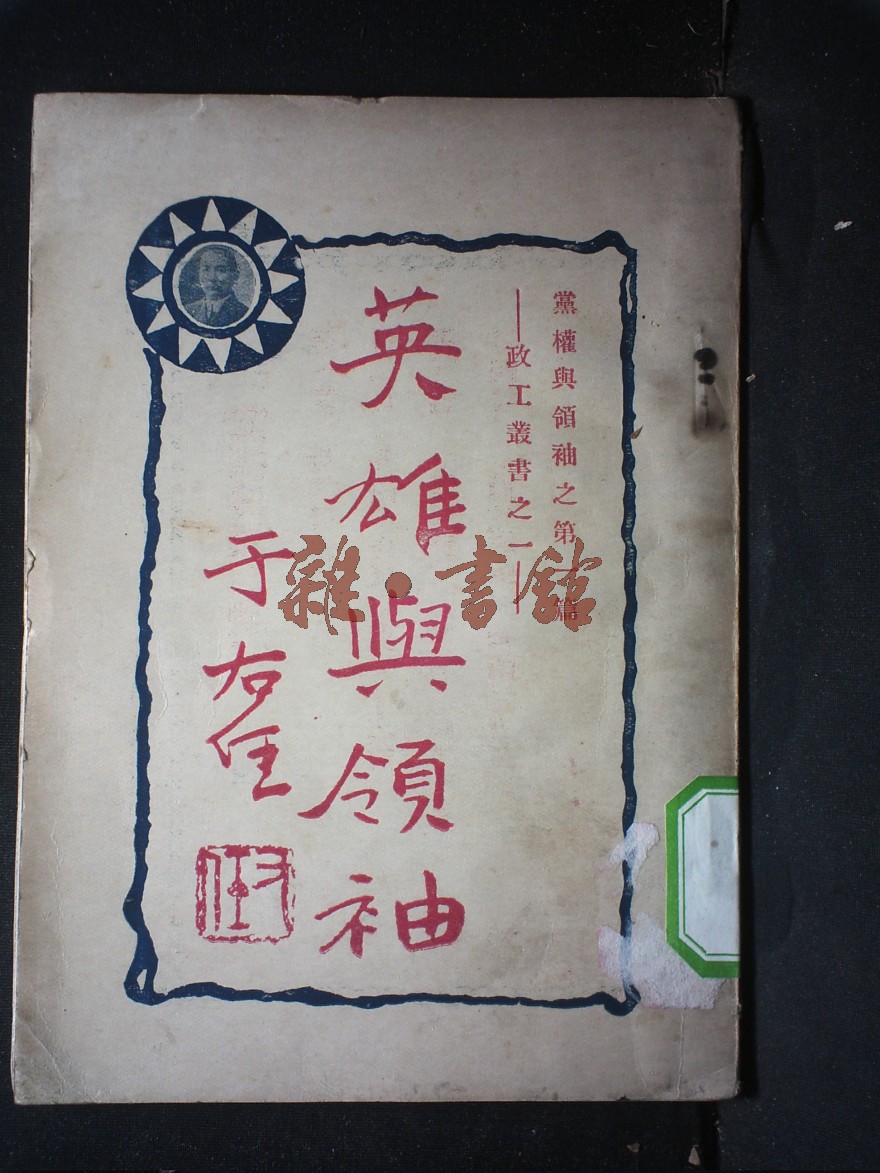 黨權與領袖之第一篇
——政工叢書之一——
英雄與領袖
于右任
右任
雜·書館